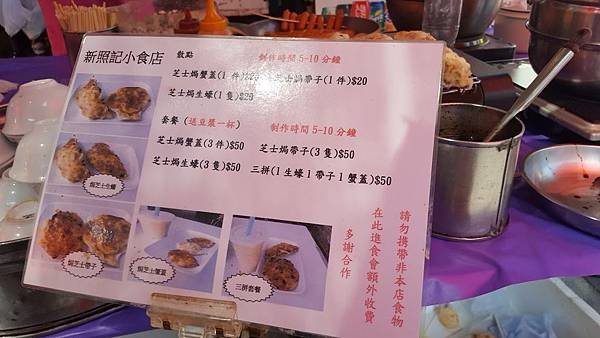 新照記小食店
散點 制作時間5-10分鐘
芝士焗蟹蓋(1件)$20 芝士焗帶子(1件)$20
芝士焗生蠔(1隻)$20
套餐 (送豆漿一杯) 制作時間5-10分鐘
芝士焗蟹蓋(3件)$50 芝士焗帶子(3隻)$50
芝士焗生蠔(3隻)$50 三拼(1生蠔1帶子1蟹蓋)$50
焗芝士生蠔
焗芝士帶子
焗芝士蟹蓋
三拼套餐
請勿携帶非本店食物
在此進食會額外收費
多謝合作